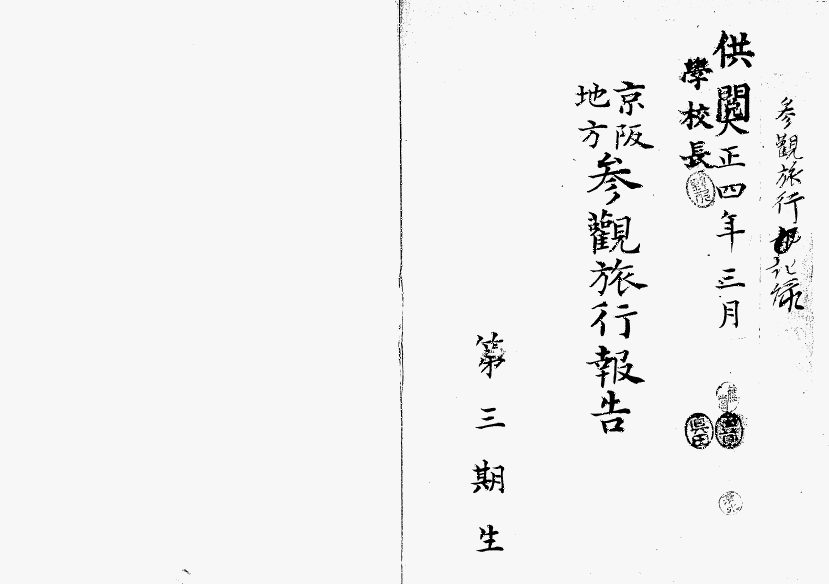 参觀旅行記録
供閲
大正四年三月
學校長
京阪地方参觀旅行報告
第三期生